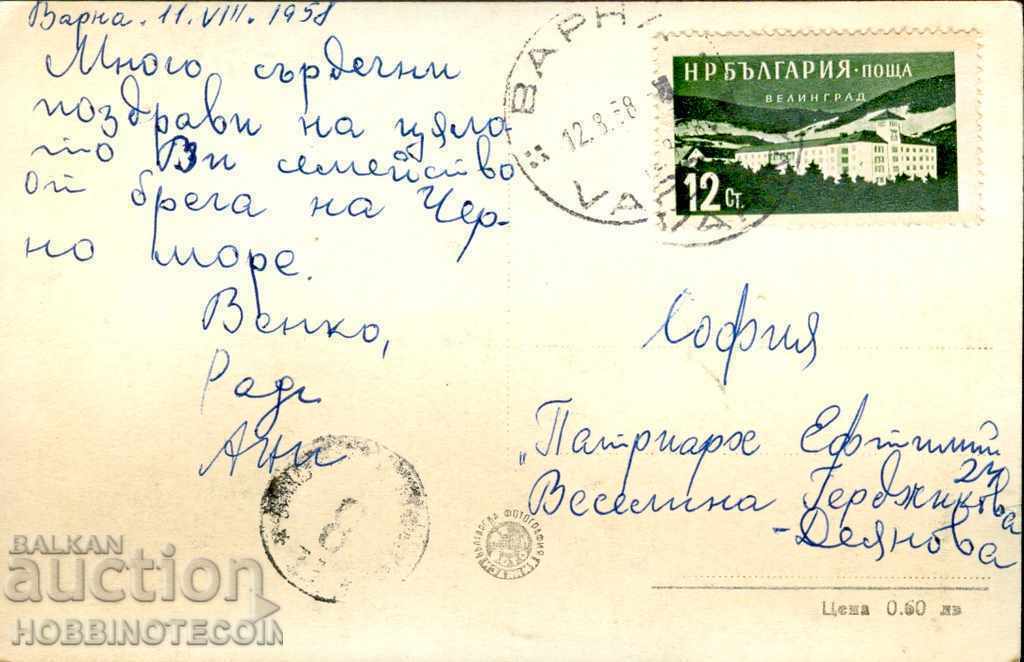 Варна. 11.VIII.1958
Много сърдечни
поздрави на цяла-
то Ви семейство
от брега на Чер-
но море.
Венко,
Ради
Ани
ВАРНА
12.8.58
VARNA
НРБЪЛГАРИЯ·ПОЩА
ВЕЛИНГРАД
12 СТ.
София
„Патриарх Ефтимий
27
Веселина Герджикова
-Деянова
БЪЛГАРСКА ФОТОГРАФИЯ
Цена 0.60 лв
BALKAN
auction
HOBBINOTECOIN